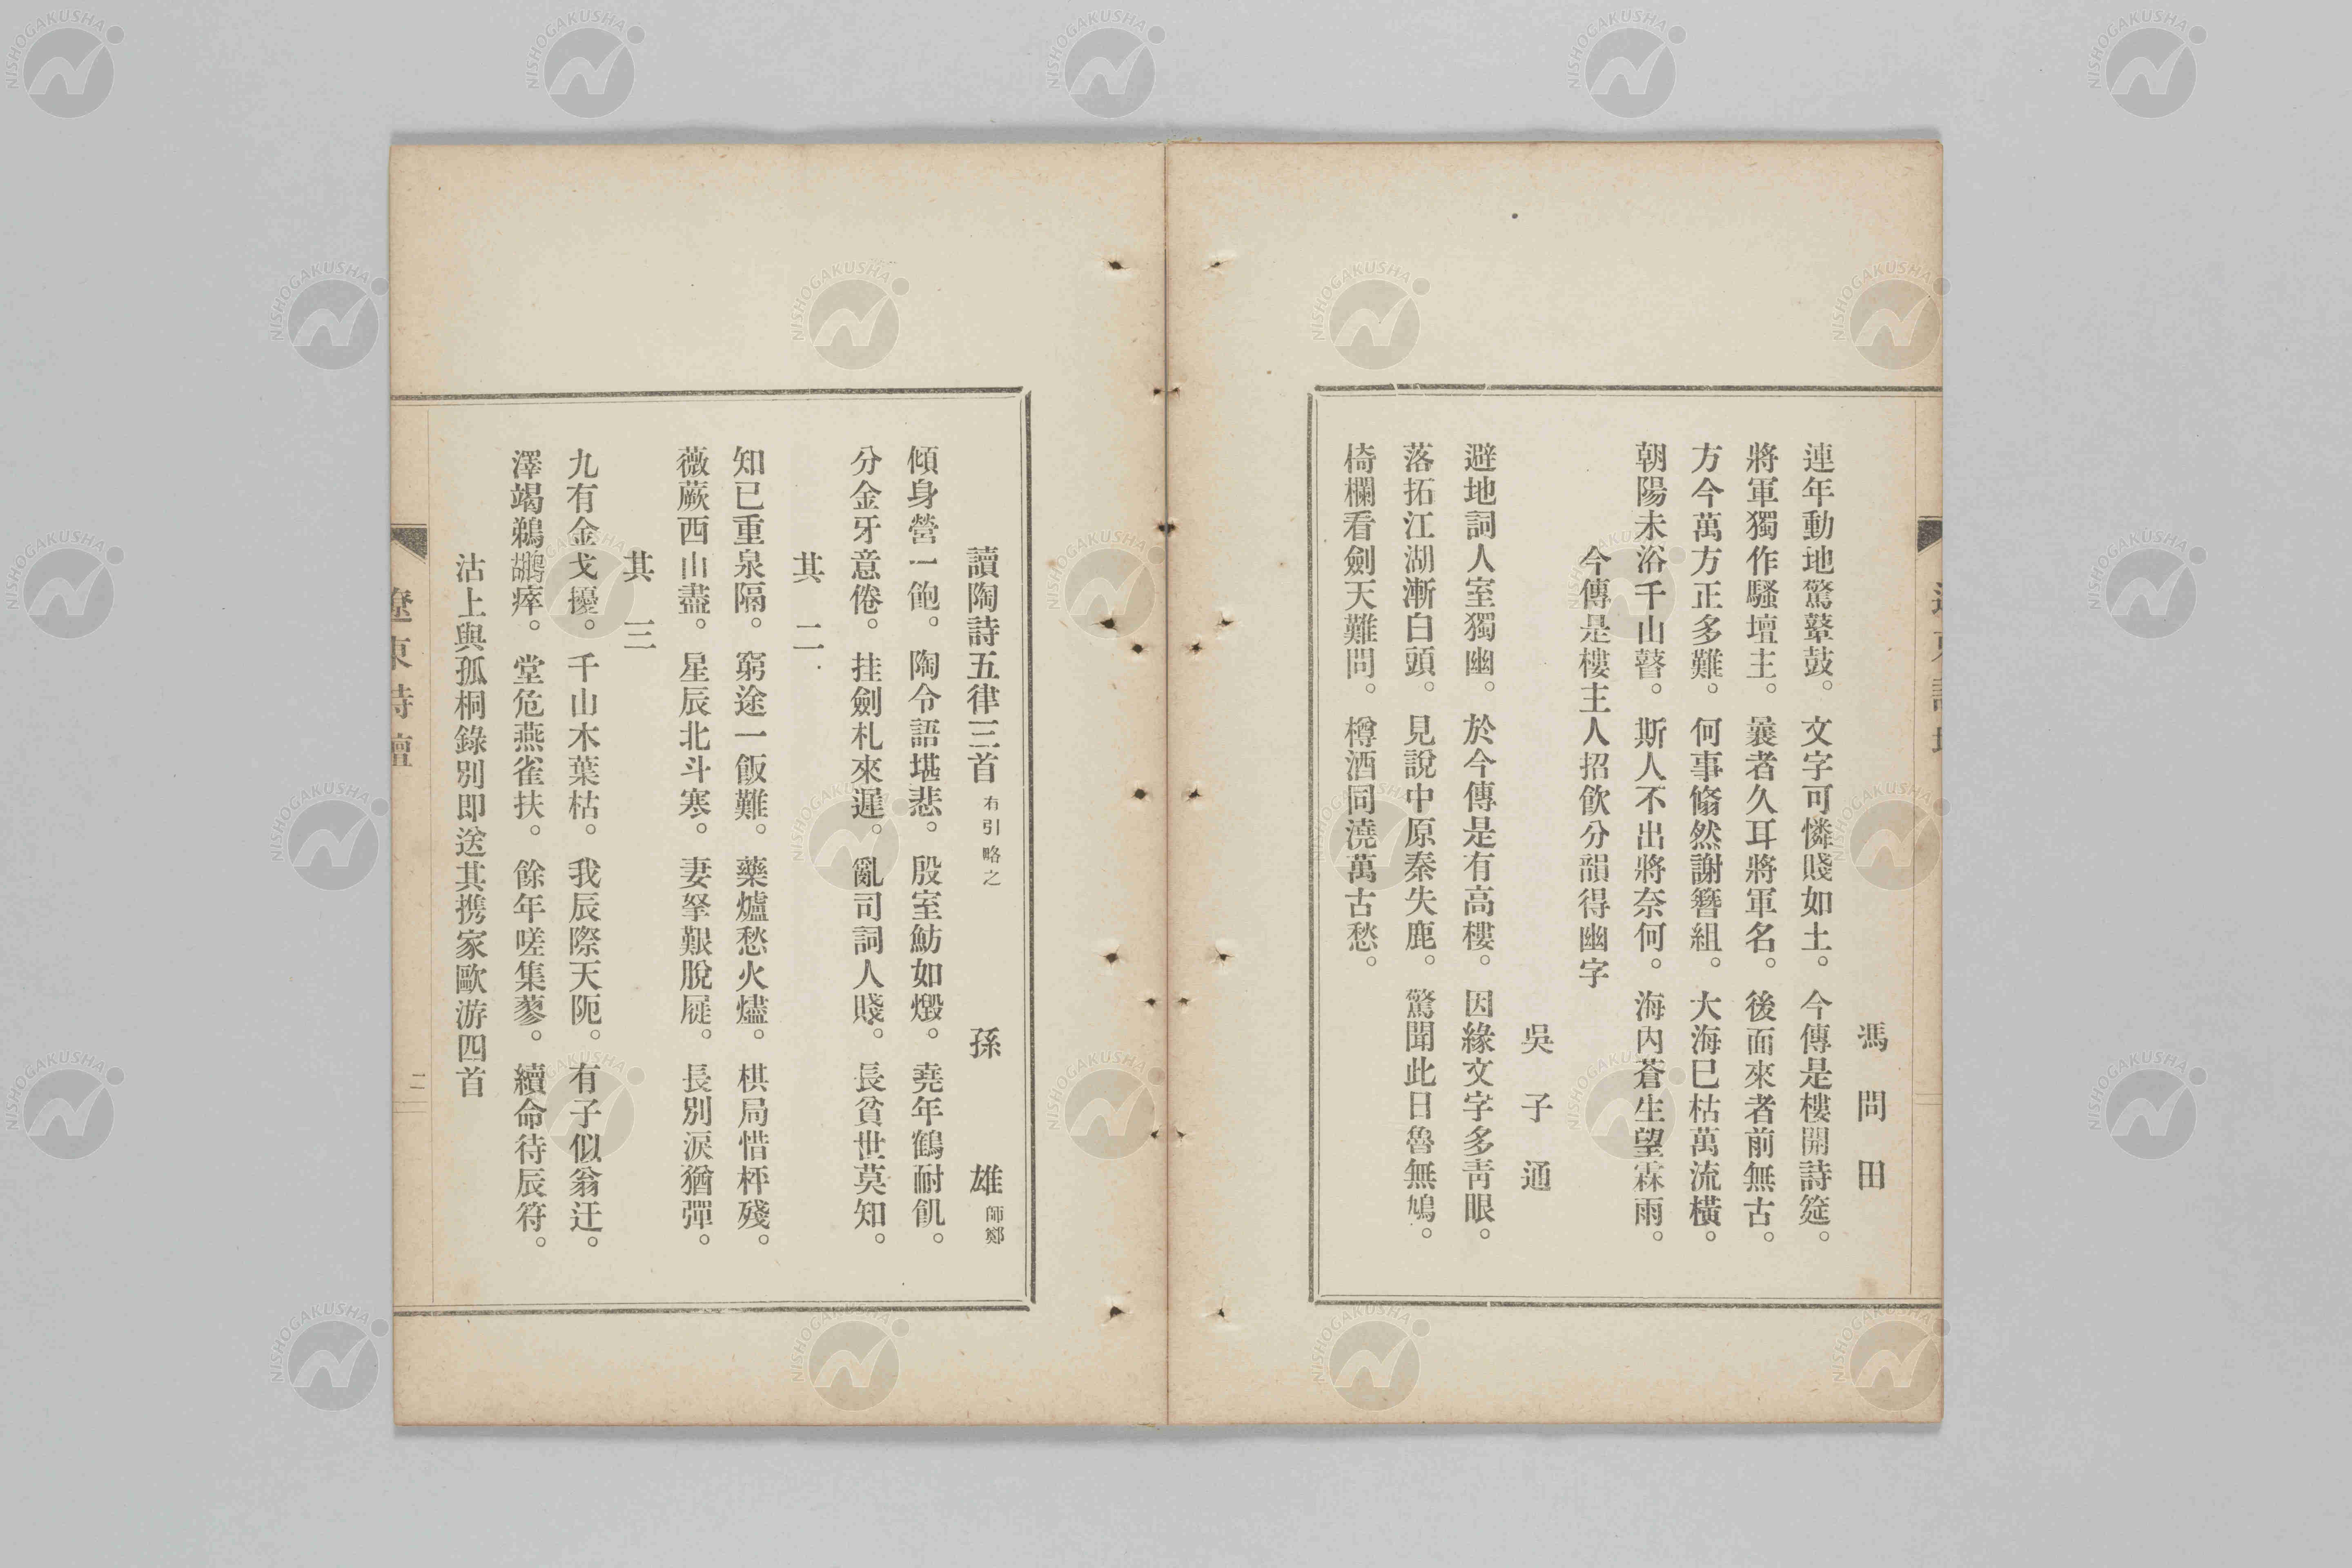 馮問田
連年動地驚鼙鼓。文字可憐賤如土。今傳是樓開詩筵。
將軍獨作騷壇主。曩者久耳將軍名。後面來者前無古。
方今萬方正多難。何事翛然謝簪組。大海已枯萬流橫。
朝陽未浴千山瞽。斯人不出將奈何。海內蒼生望霖雨。
今傳是樓主人招飲分韻得幽字
吳子通
避地詞人室獨幽。於今傳是有高樓。因緣文字多靑眼。
落拓江湖漸白頭。見說中原秦失鹿。驚聞此日魯無鳩。
椅欄看劍天難問。樽酒同澆萬古愁。
讀陶詩五律三首 有引略之 孫雄 師鄭
傾身營一飽。陶令語堪悲。殷室魴如燬。堯年鶴耐飢。
分金牙意倦。挂劍札來遲。亂司詞人賤。長貧世莫知。
其二
知已重泉隔。窮途一飯難。藥爐愁火燼。棋局惜枰殘。
薇蕨西山盡。星辰北斗寒。妻孥艱脫屣。長別淚猶彈。
其三
九有金戈擾。千山木葉枯。我辰際天阨。有子似翁迂。
澤竭鵜鶘瘁。堂危燕雀扶。餘年嗟集蓼。續命待辰符。
沽上與孤桐錄別即送其携家歐游四首
遼東詩壇
二
NISHOGAKUSHA